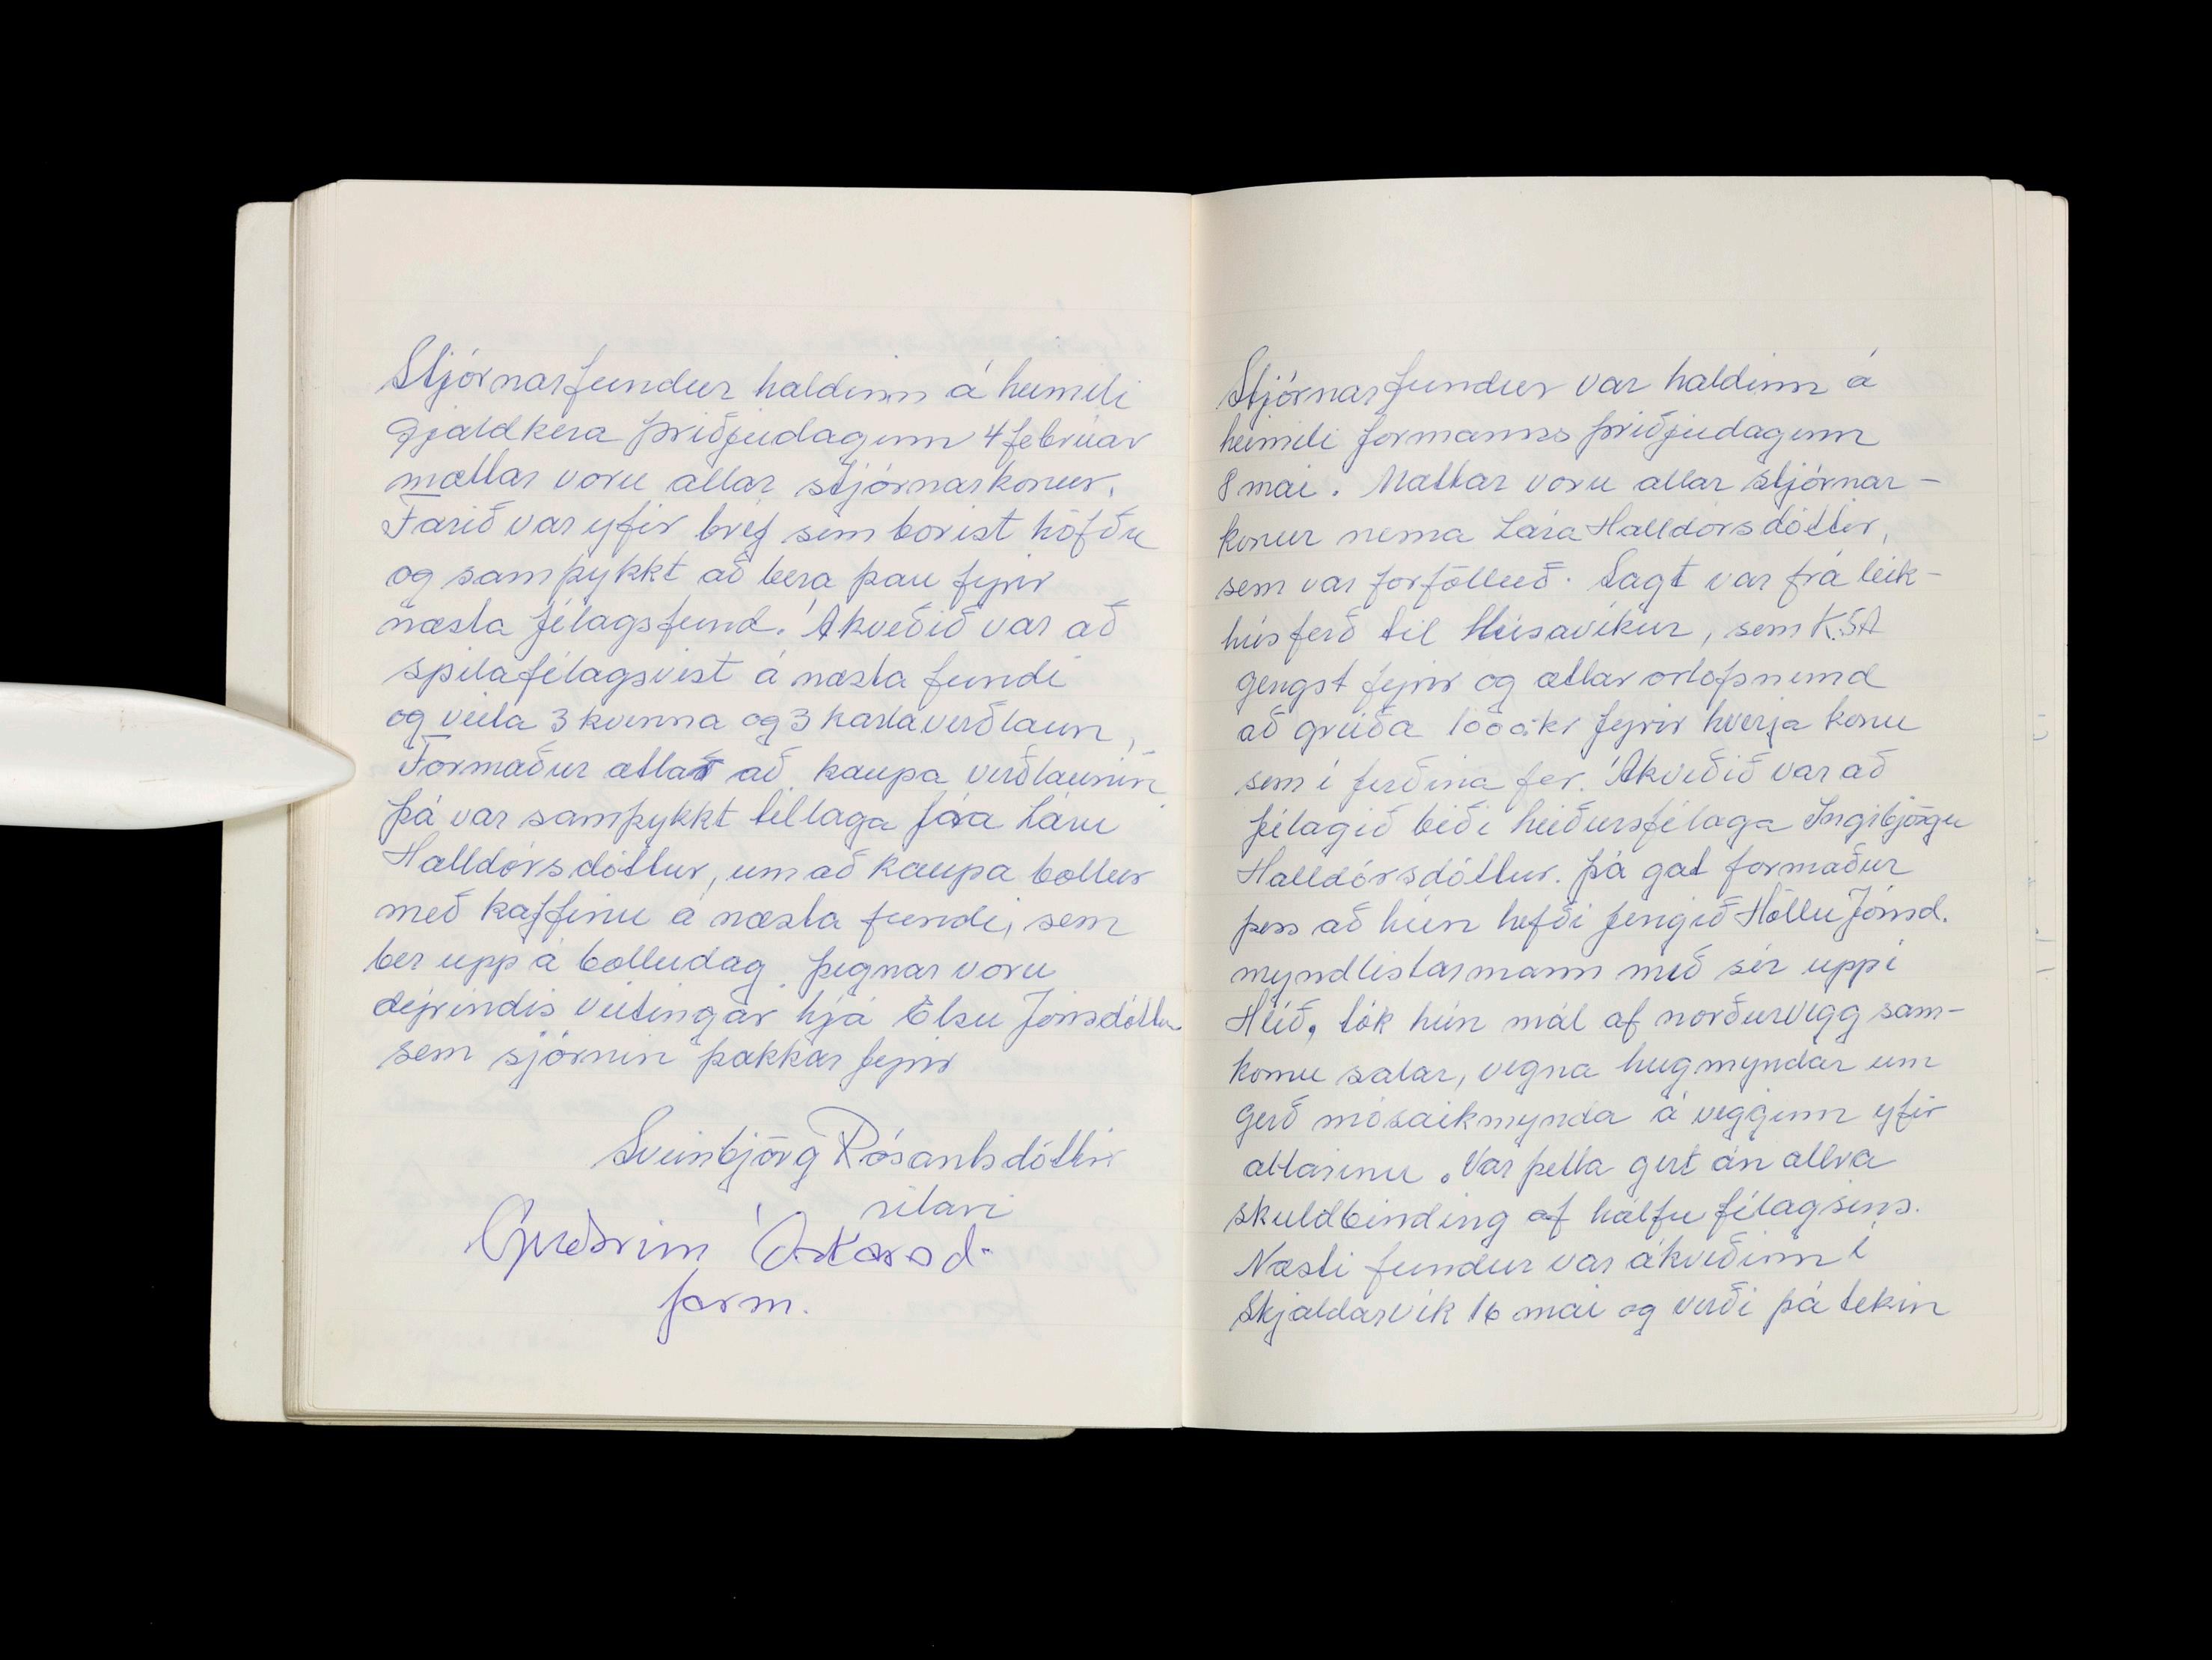 Stjórnarfundur haldinn á heimili
Gjaldkera þriðjudaginn 4 febrúar
mættar voru allar stjórnarkonur.
Farið var yfir bréf sem borist höfðu
og samþykkt að bera þau fyrir
næsta félagsfund. Ákveðið var að
spilafélagsvist á næsta fundi
og veita 3 kvenna og 3 karlaverðlaun,
Formaður ætlar að kaupa verðlaunin
þá var samþykkt tillaga frá Láru
Halldórsdóttur, um að kaupa bollur
með kaffinu á næsta fundi, sem
ber upp á bolludag. Þegnar voru
dýrindis veitingar hjá Elsu Jónsdóttur
sem sjórnin þakkar fyrir
Sveinbjörg Rósantsdóttir
ritari
Guðrún Óskarsd.
form.
Stjórnarfundur var haldinn á
heimili formanns þriðjudaginn
8 mai. Mættar voru allar stjórnar-
konur nema Lára Halldórsdóttir,
sem var forfölluð. Sagt var frá leik-
húsferð til Húsavíkur, sem K.S.A
gengst fyrir og ætlar orlofsnemd
að greiða 1000.kr fyrir hverja konu
sem í ferðina fer. Ákveðið var að
félagið biði heiðursfélaga Ingibjörgu
Halldórsdóttur. Þá gat formaður
þess að hún hefði fengið Höllu Jónsd.
myndlistarmann með sér uppí
Hlíð, tók hún mál af norðurvegg sam-
komu salar, vegna hugmyndar um
gerð mósaikmynda á vegginn yfir
altarinu. Var þetta gert án allra
skuldbinding af hálfu félagsins.
Næsti fundur var ákveðinn í
Skjaldarvík 16 mai og verði þá tekin